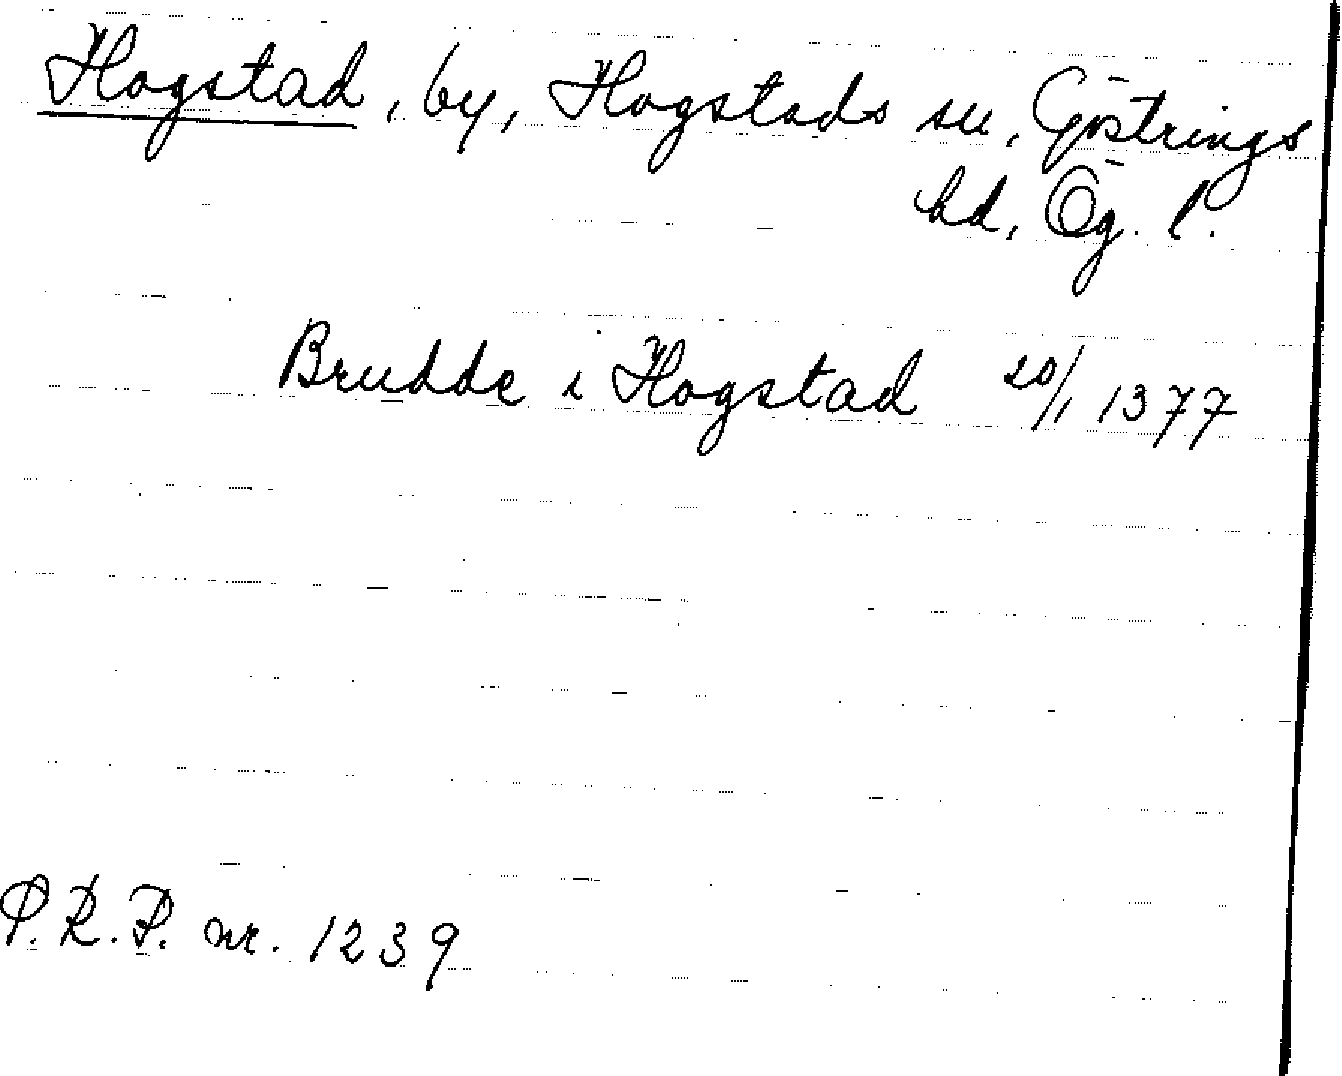 Hogstad, by, Hogstads sn, Göstrings
hd, Ög. l.
Brudde i Hogstad 20/1 1377
P.R.P. nr. 1239